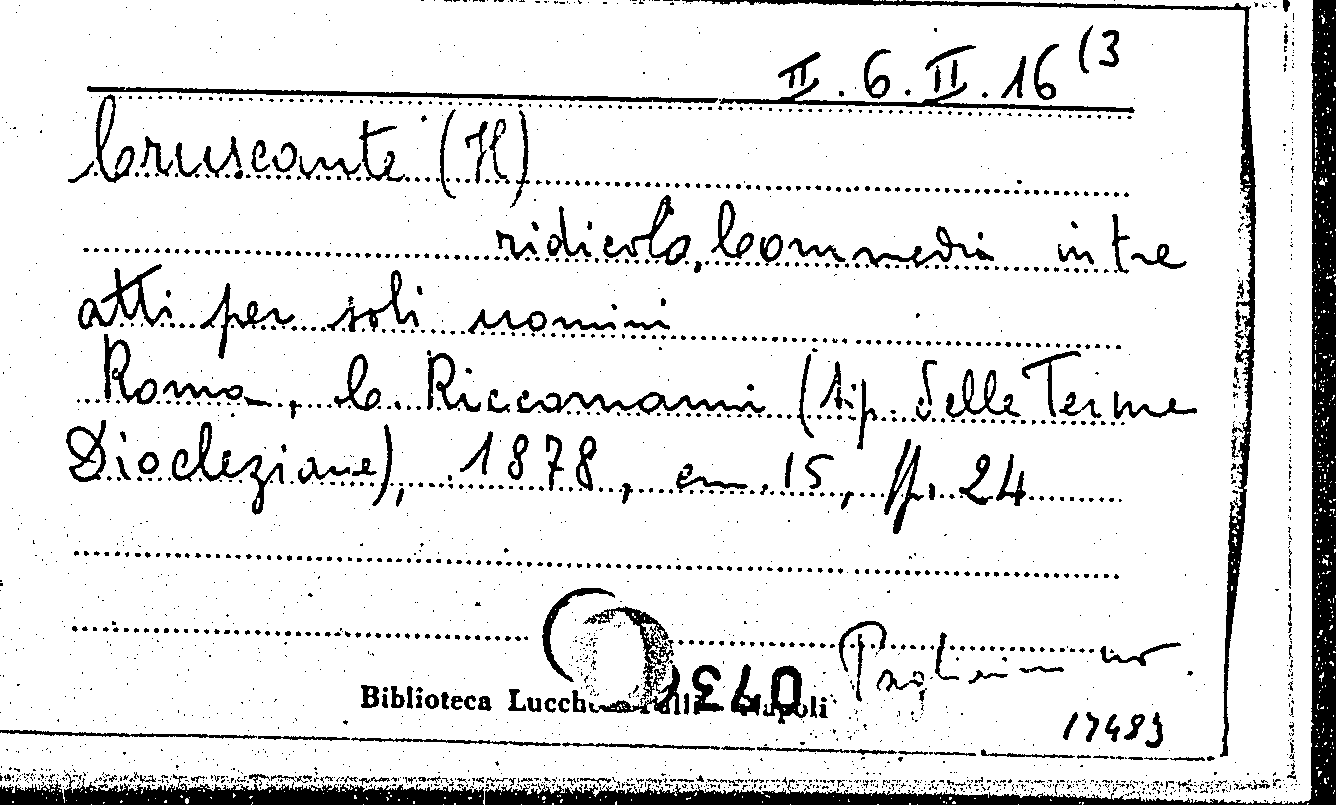 II.6.II.16(3
Cruscante (Il)
ridicolo, Commedia in tre
atti per soli uomini
Roma, C. Riccomanni (tip. delle Terme
Diocleziane), 1878, cm. 15, pp. 24
Biblioteca Lucchesi Palli - Napoli
17483